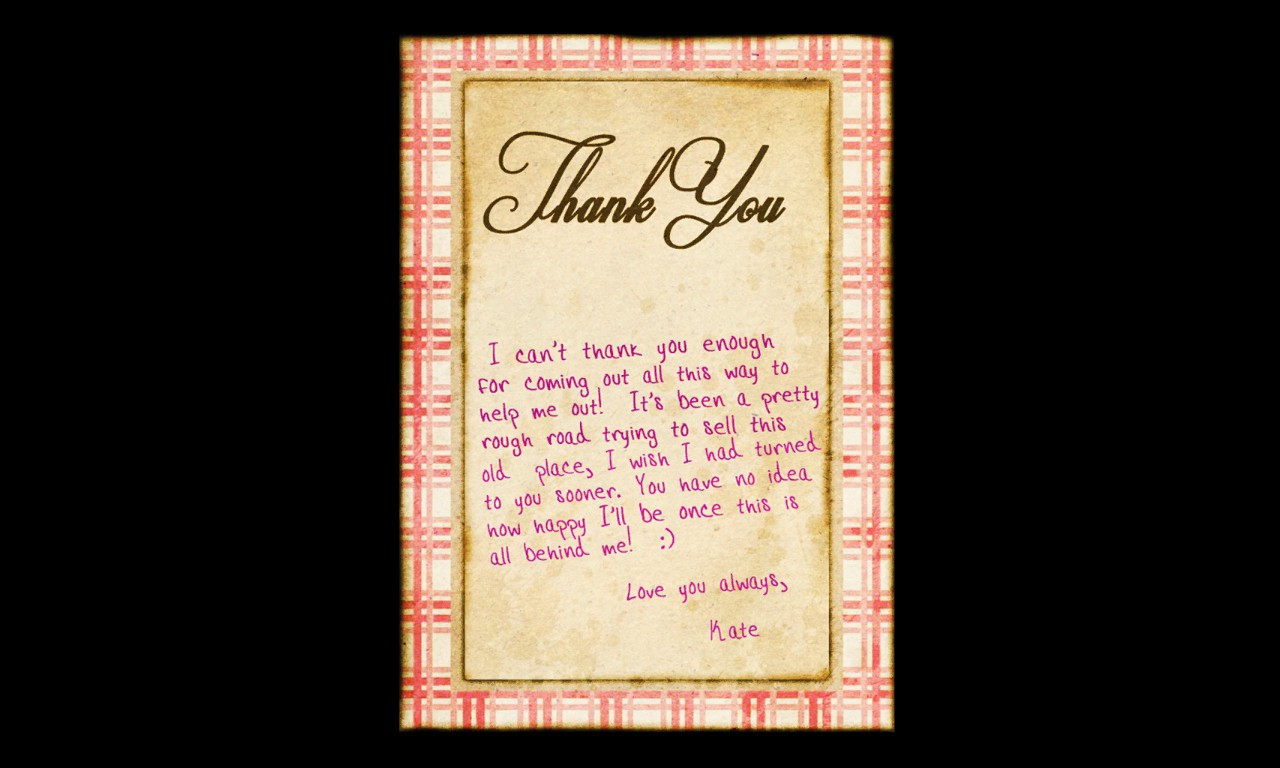 Thank You
I can't thank you enough
for coming out all this way to
help me out! It's been a pretty
rough road trying to sell this
old place, I wish I had turned
to you sooner. You have no idea
how happy I'll be once this is
all behind me! :)
Love you always,
Kate